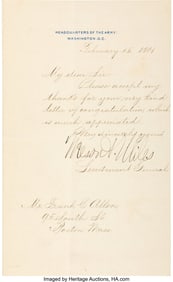 HEADQUARTERS OF THE ARMY
WASHINGTON, D.C.
February 16, 1901
My dear Sir
Please accept my
thanks for your very kind
letter of congratulation, which
is much appreciated.
Very sincerely yours
Nelson A. Miles
Lieutenant General
Mr. Frank G. Allen
95 South St
Boston Mass
Imaged by Heritage Auctions, HA.com